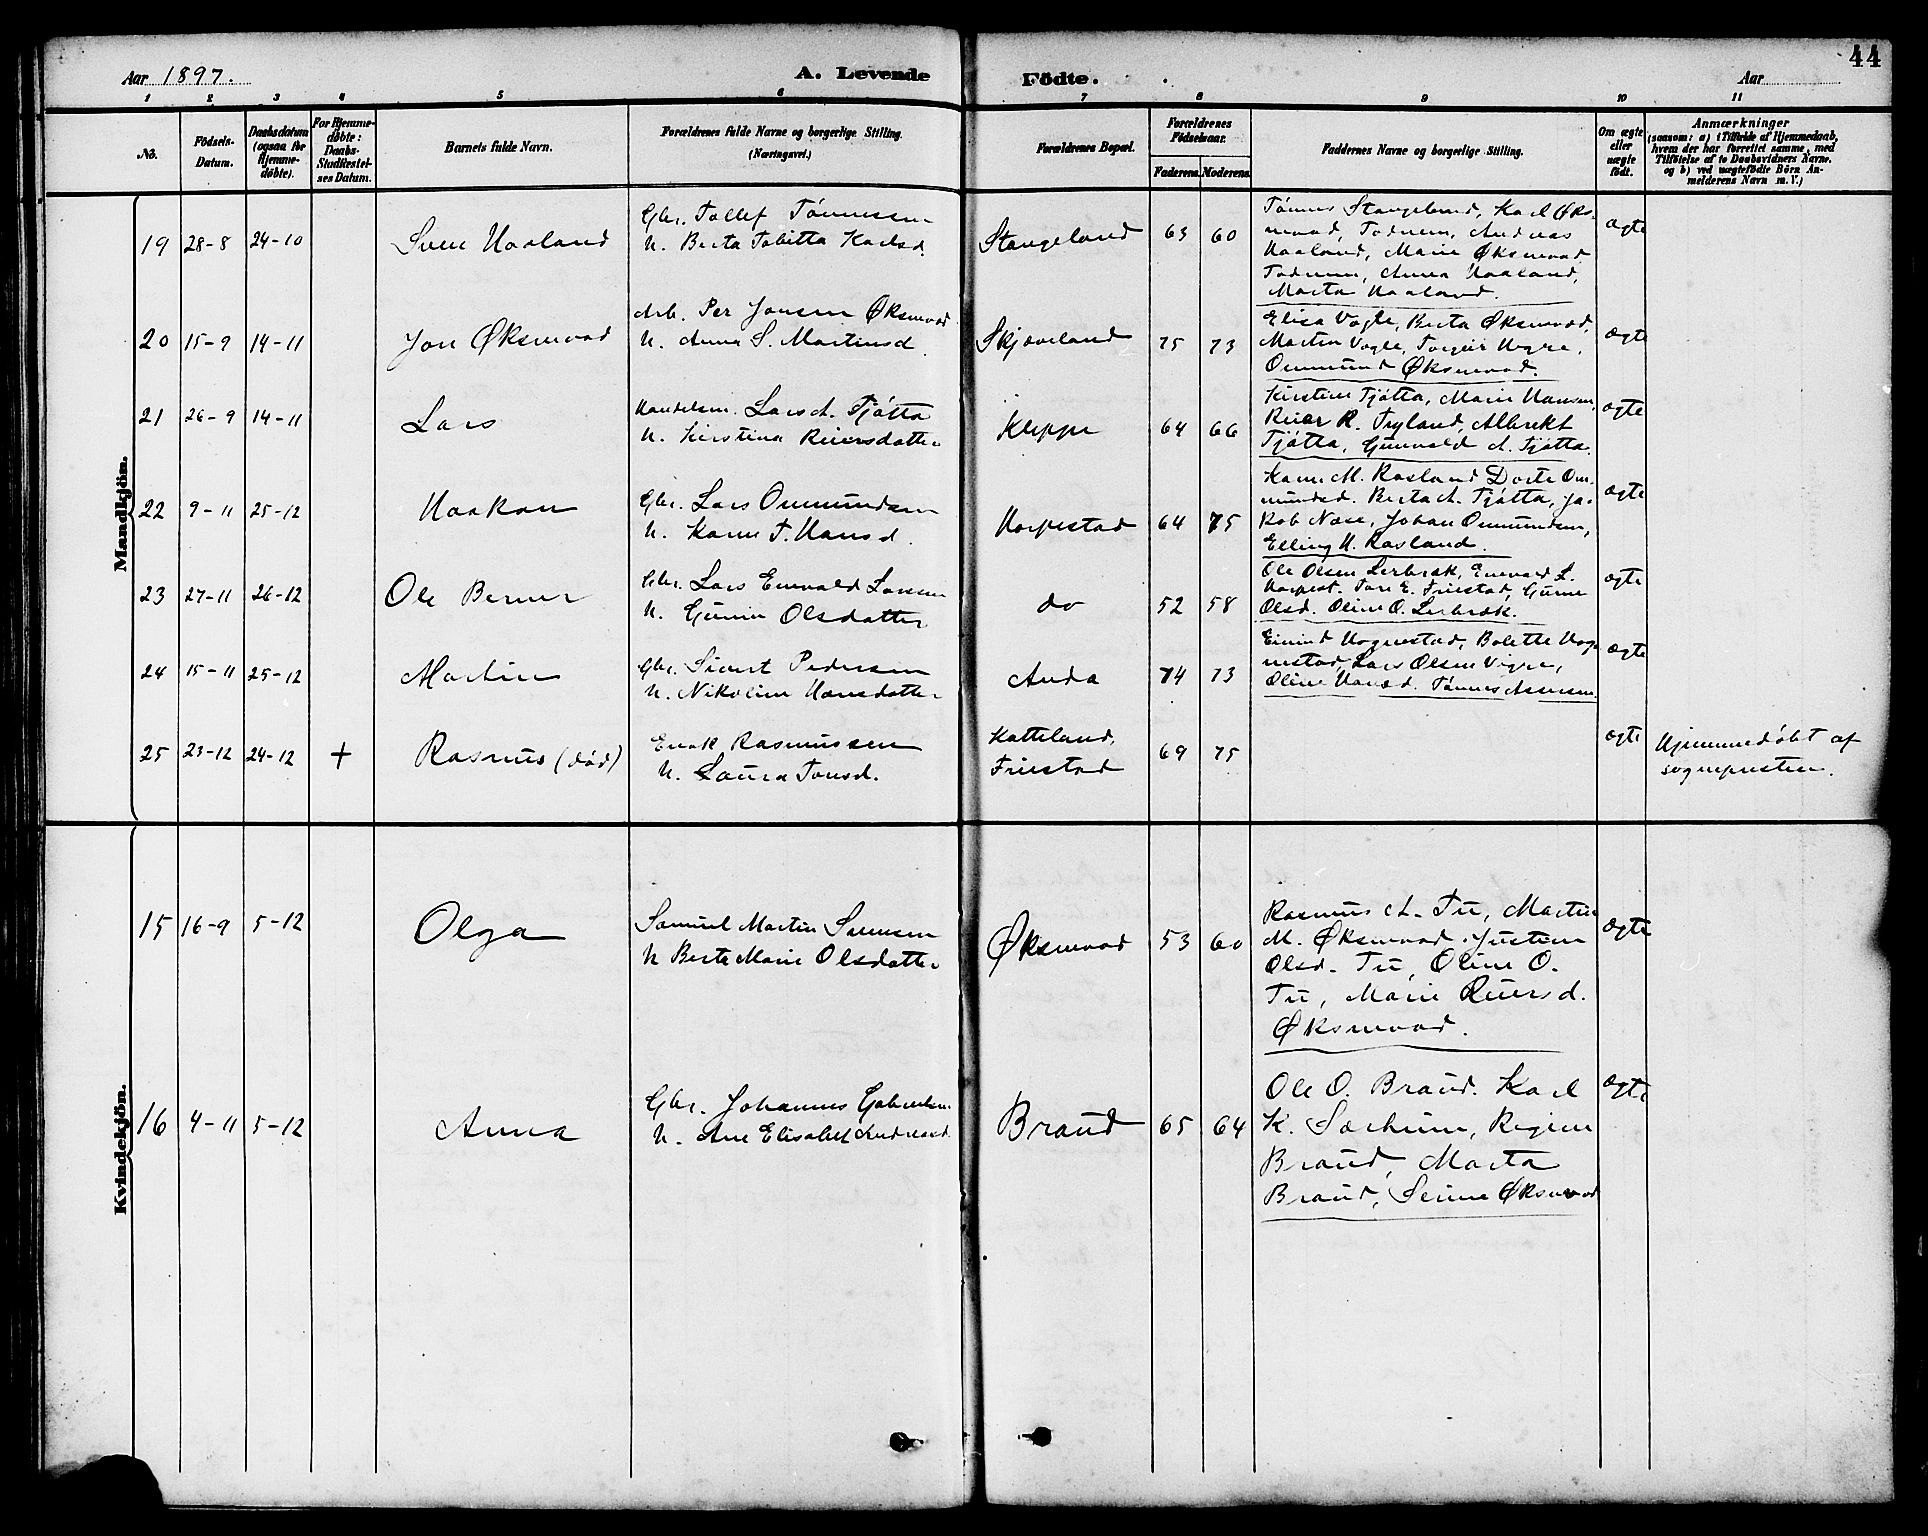 Aar 1897.
A. Levende
Födte.
Aar
44
1 2 3 4 5 6 7 8 9 10 11
No.
Födsels-
Datum.
Daabsdatum
(ogsaa for
Hjemme-
döbte).
For Hjemme-
døbte:
Daabs-
Stadfæstel-
ses Datum.
Barnets fulde Navn.
Forældrenes fulde Navne og borgerlige Stilling.
(Næringsvei.)
Forældrenes Bopæl.
Forældrenes
Födselsaar.
Faderens. Moderens.
Faddernes Navne og borgerlige Stilling.
Om ægte
eller
uægte
födt.
Anmærkninger
(saasom: a) i Tilfælde af Hjemmedaab,
hvem der har forrettet samme, med
Tilföielse af to Daabsvidners Navne,
og b) ved uægtefödte Börn An-
melderens Navn m. V.)
Mandkjön.
19 28-8 24-10 Sven Haaland
Gbr. Tollef Tönnessen
H. Berta Tobitta Karlsd.
Stangeland 63 60
Tönnes Stangeland, Karl Øks-
navad, Todnem, Andreas
Haaland, Marie Øksnavad
Todnem, Anna Haaland,
Marta Haaland.
ægte
20 15-9 14-11 Jon Øksnavad
Arb. Per Jonsen Øksnavad
H. Anna S. Martinsd.
Skjæveland 75 73
Elisa Vagle, Berta Øksnavad,
Martin Vagle, Torgeir Hegre,
Ommund Øksnavad.
ægte
21 26-9 14-11 Lars
Handelsm. Lars A. Tjøtta
H. Kirstina Reiersdatter
Kleppe 64 66
Kirstine Tjøtta, Marie Hansen,
Reier R. Tryland, Albrekt
Tjøtta, Gunvald A. Tjøtta.
ægte
22 9-11 25-12 Haakon
Gbr. Lars Ommundsen
H. Karen T. Hansd.
Horpestad 64 75
Karen M. Rosland Dorte Om-
mundsd. Berta A. Tjøtta, Ja-
kob Næse, Johan Ommundsen,
Elling H. Rosland.
ægte
23 27-11 26-12 Ole Berner
Gbr. Lars Enevald Larsen
H. Gurine Olsdatter
do 52 58
Ole Olsen Lerbræk, Enevald L.
Horpest. Tore E. Friestad, Gurine
Olsd. Oline O. Lerbræk.
ægte
24 15-11 25-12 Martin
Gbr. Sivert Pedersen
H. Nikoline Hansdatter
Anda 74 73
Eivind Hognestad, Bolette Hog-
nestad, Lars Olsen Vigre,
Oline Hansd. Tønnes Assersen.
ægte
25 23-12 24-12 + Rasmus (død)
Enok Rasmussen
H. Laura Tonsd.
Katteland,
Friestad
69 75
ægte
Hjemmedøbt af
sognepresten.
Kvindekjön.
15 16-9 5-12 Olga
Samuel Martin Svensen
H Berte Marie Olsdatter
Øksnavad 53 60
Rasmus A. Tu, Martin
M. Øksnavad. Justine
Olsd. Tu, Oline O.
Tu, Marie
Øksnavad.
ægte
16 4-11 5-12 Anna
Gbr. Johannes Gabrielsen
H. Ane Elisabet Andreasd.
Braud 65 64
Ole O. Braud. Karl
K. Sæthum, Regine
Braud, Marta
Braud, Serine Øksnavad
ægte